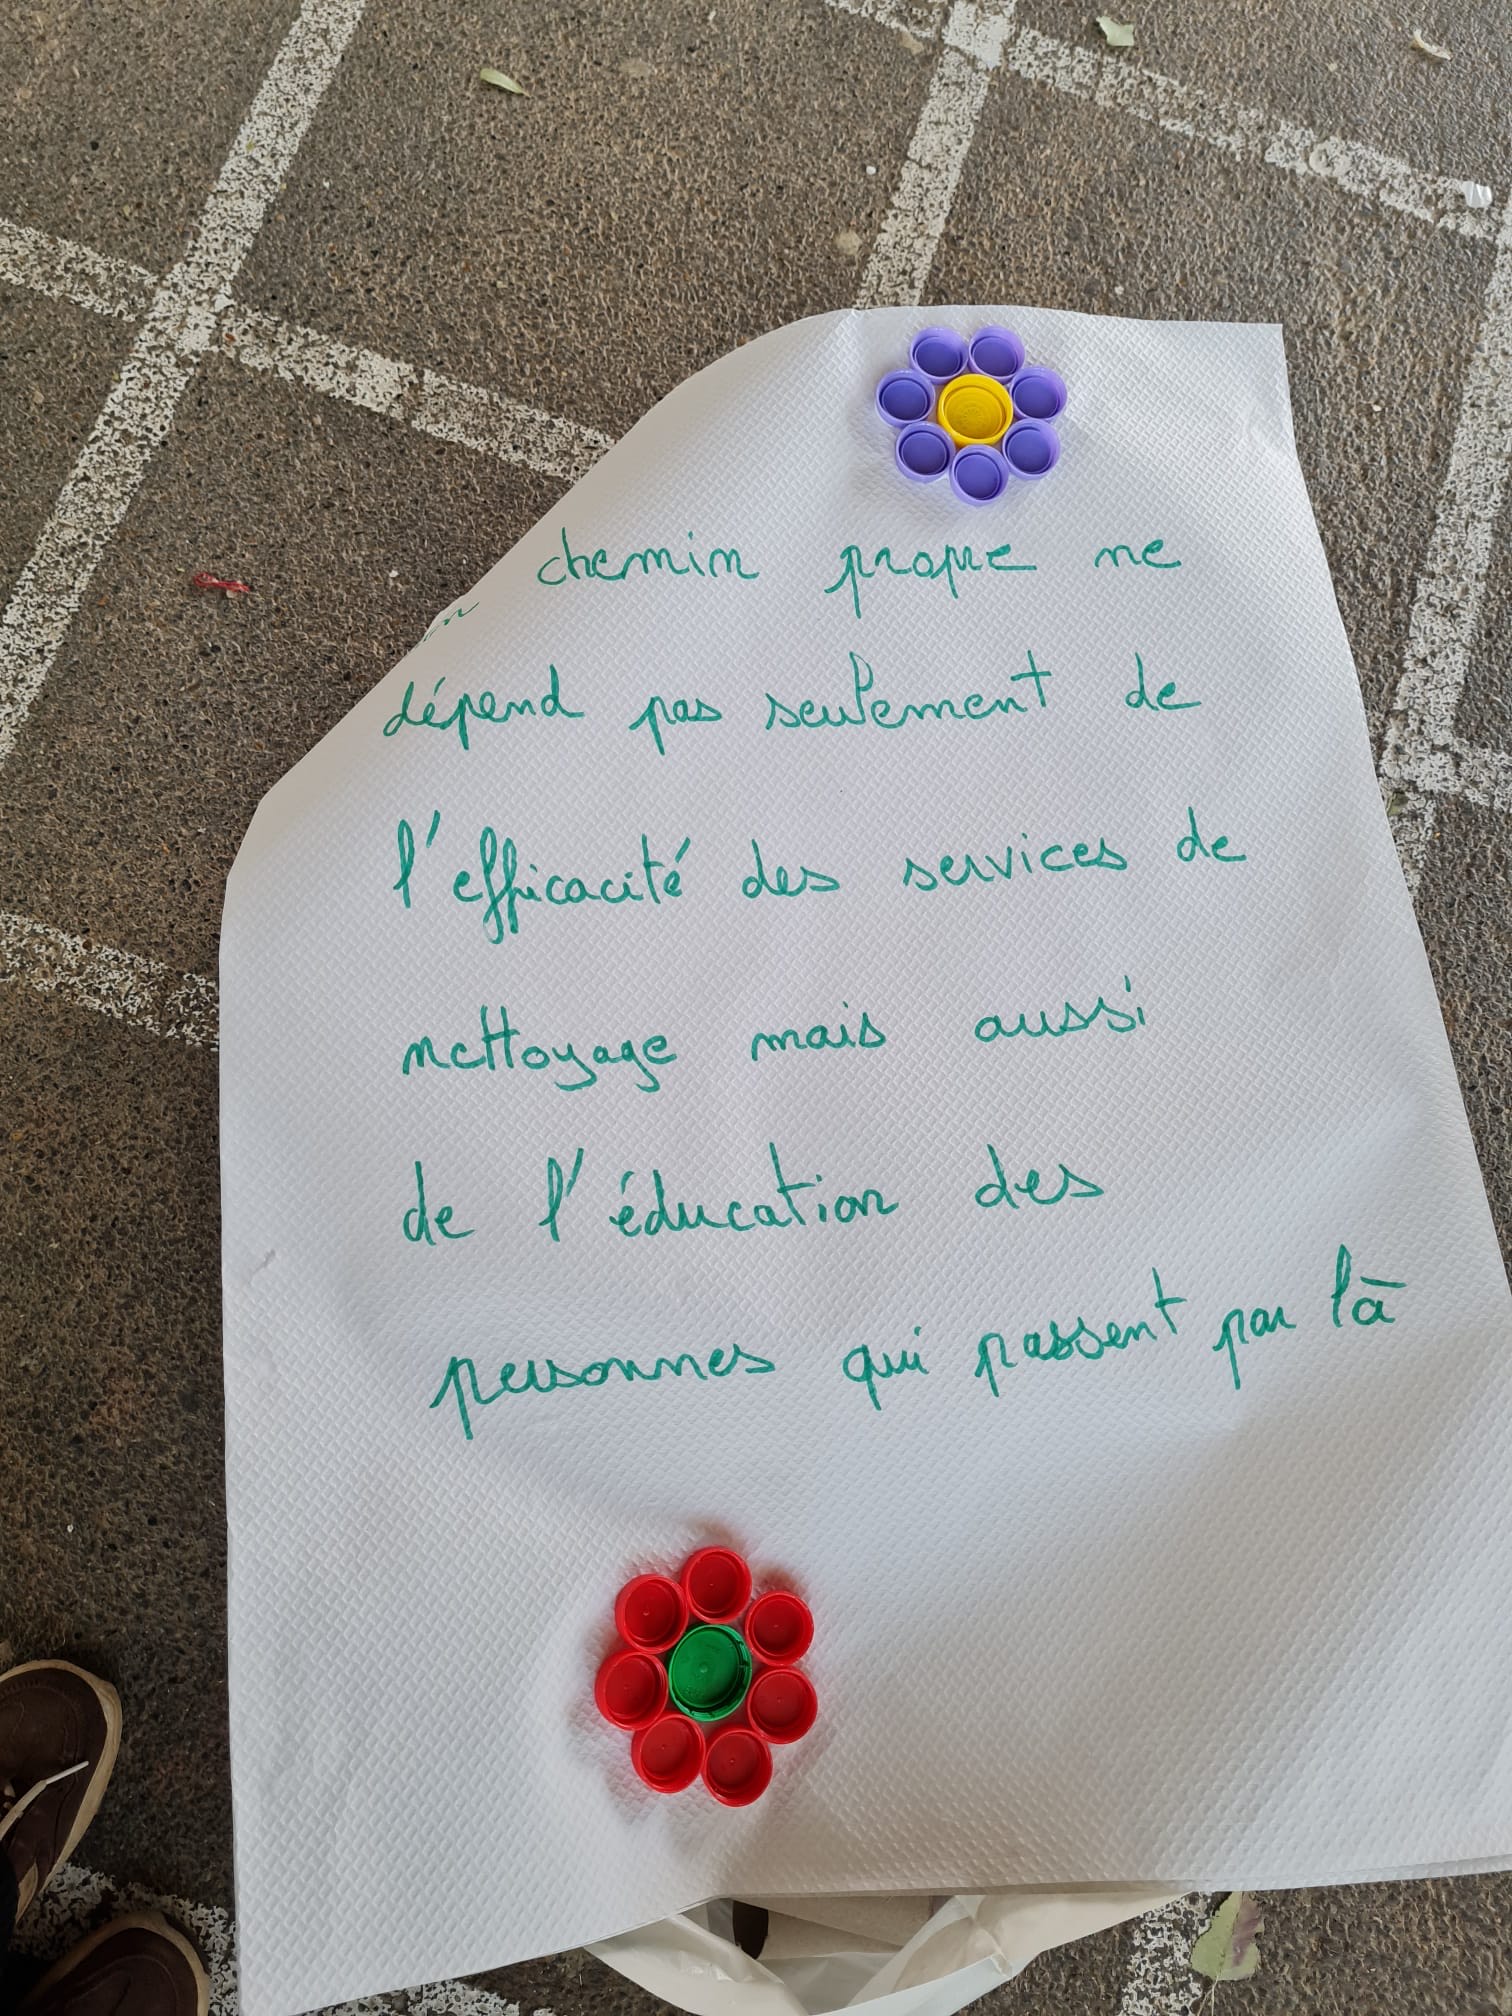 chemin propre ne
dépend pas seulement de
l'efficacité des services de
nettoyage mais aussi
de l'éducation des
personnes qui passent par là